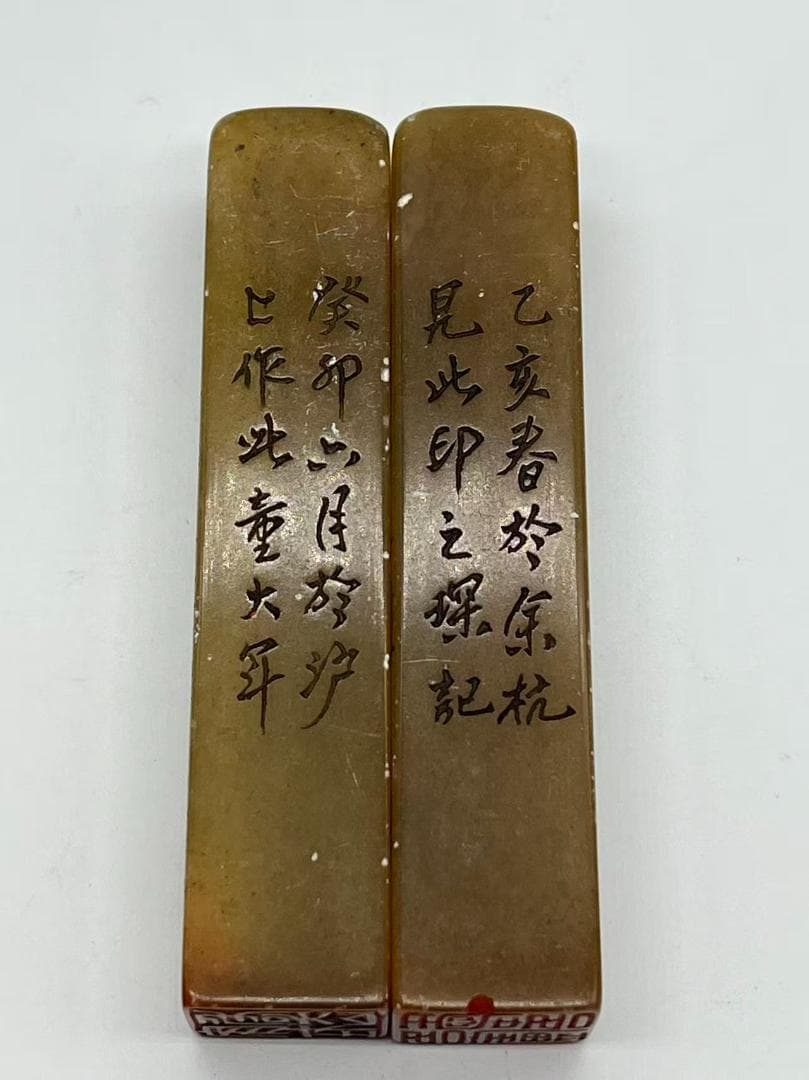 乙亥春於余杭
見此印之琛記
癸卯六月於沪
上作此童大年